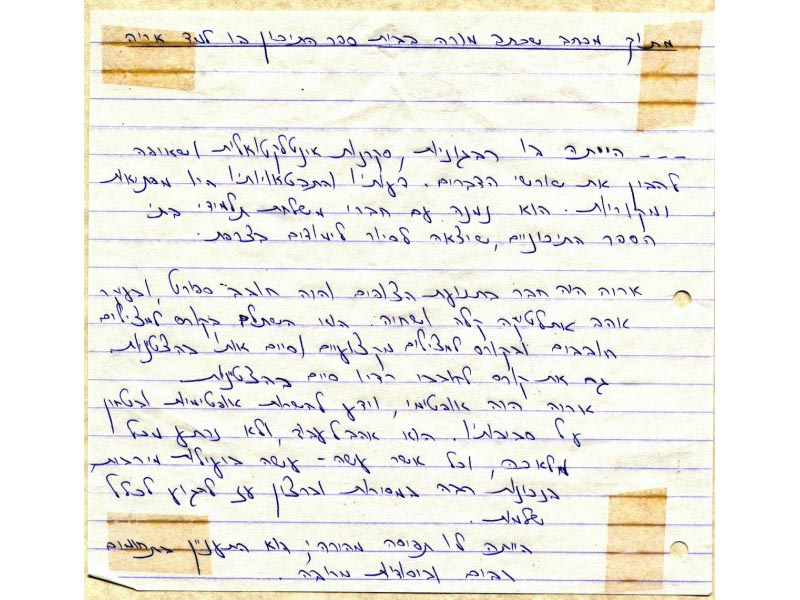 מתוך מכתב שכתב מורה בבית ספר התיכון בו למד אריה
--- הייתה בו רבגוניות, סקרנות אינטלקטואלית ושאיפה
להבין את שורשי הדברים. דעותיו והתבטאויותיו היו מפתיעות
ומקוריות. הוא נמנה עם חברי משלחת תלמידי בתי
הספר התיכוניים, שיצאה לסיור לימודים בצרפת.
אריה היה חבר בתנועת הצופים והיה חובב-ספורט, ובעיקר
אהב אתלטיקה קלה ושחיה. הוא השתלם בקורס למצילים
חובבים ובקורס למצילים מקצועיים וסיים אותו בהצטיינות.
גם את קורס לחובבי רדיו סיים בהצטיינות.
אריה היה אופטימי, וידע להשרות אופטימיות וביטחון
על סביבתו. הוא אהב לעבוד, ולא נרתע מכל
מלאכה, וכל אשר עשה - עשה ביעילות מירבית,
בנכונות רבה במסירות וברצון עז להגיע לכלל
שלמות.
הייתה לו תפיסה מהירה; הוא התעניין בתחומים
רבים וביסודיות מרובה.